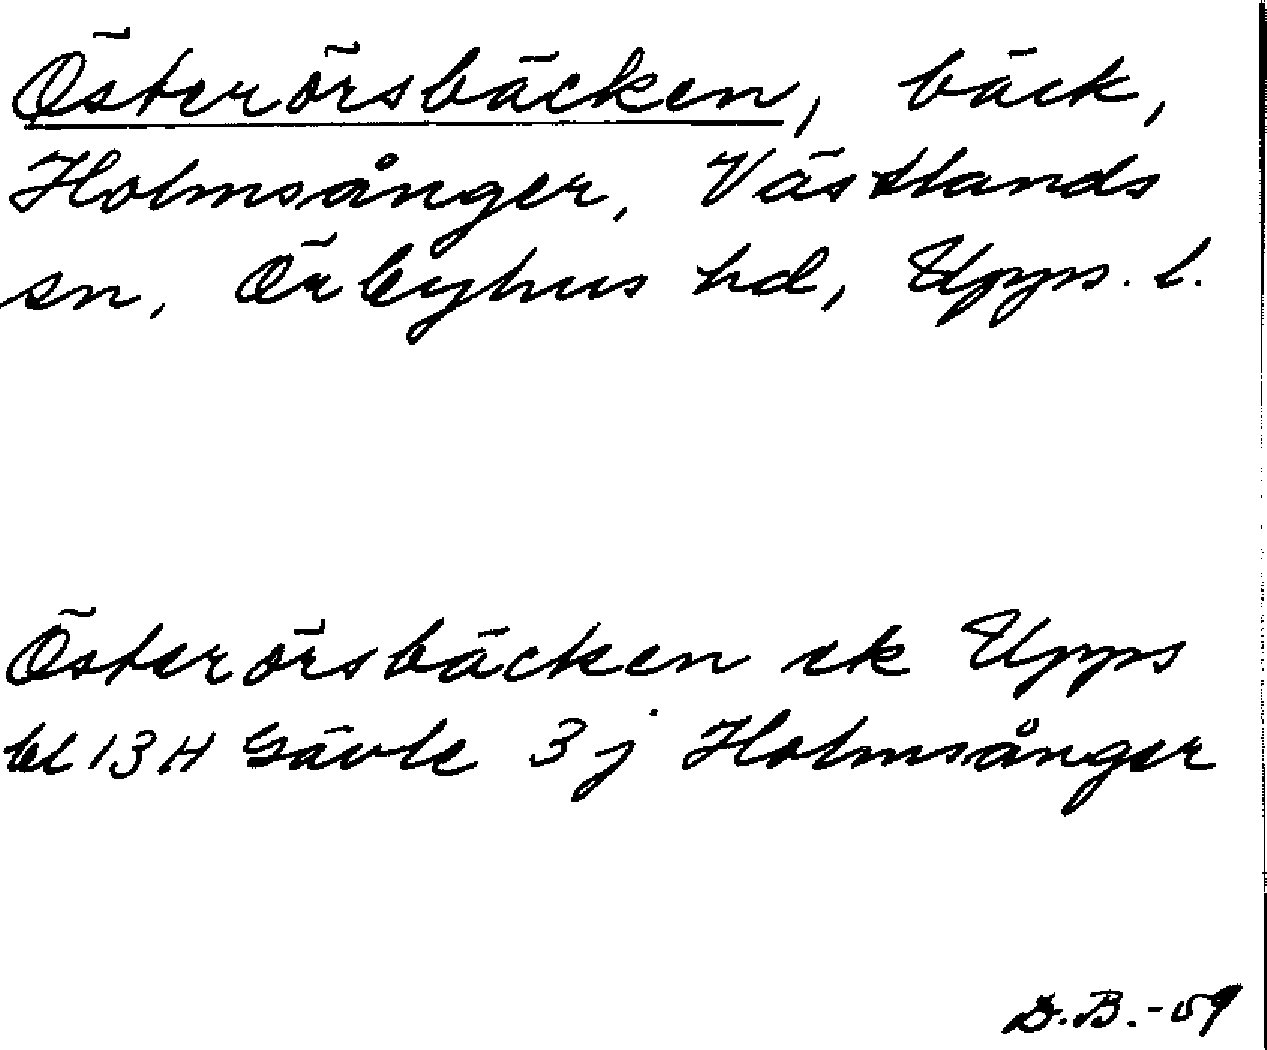 Österörsbäcken, bäck,
Holmsånger, Västlands
sn, Örbyhus hd, Upps. l.
Österörsbäcken ek Upps
bl 13 H Gävle 3 j Holmsånger
D.B.-59